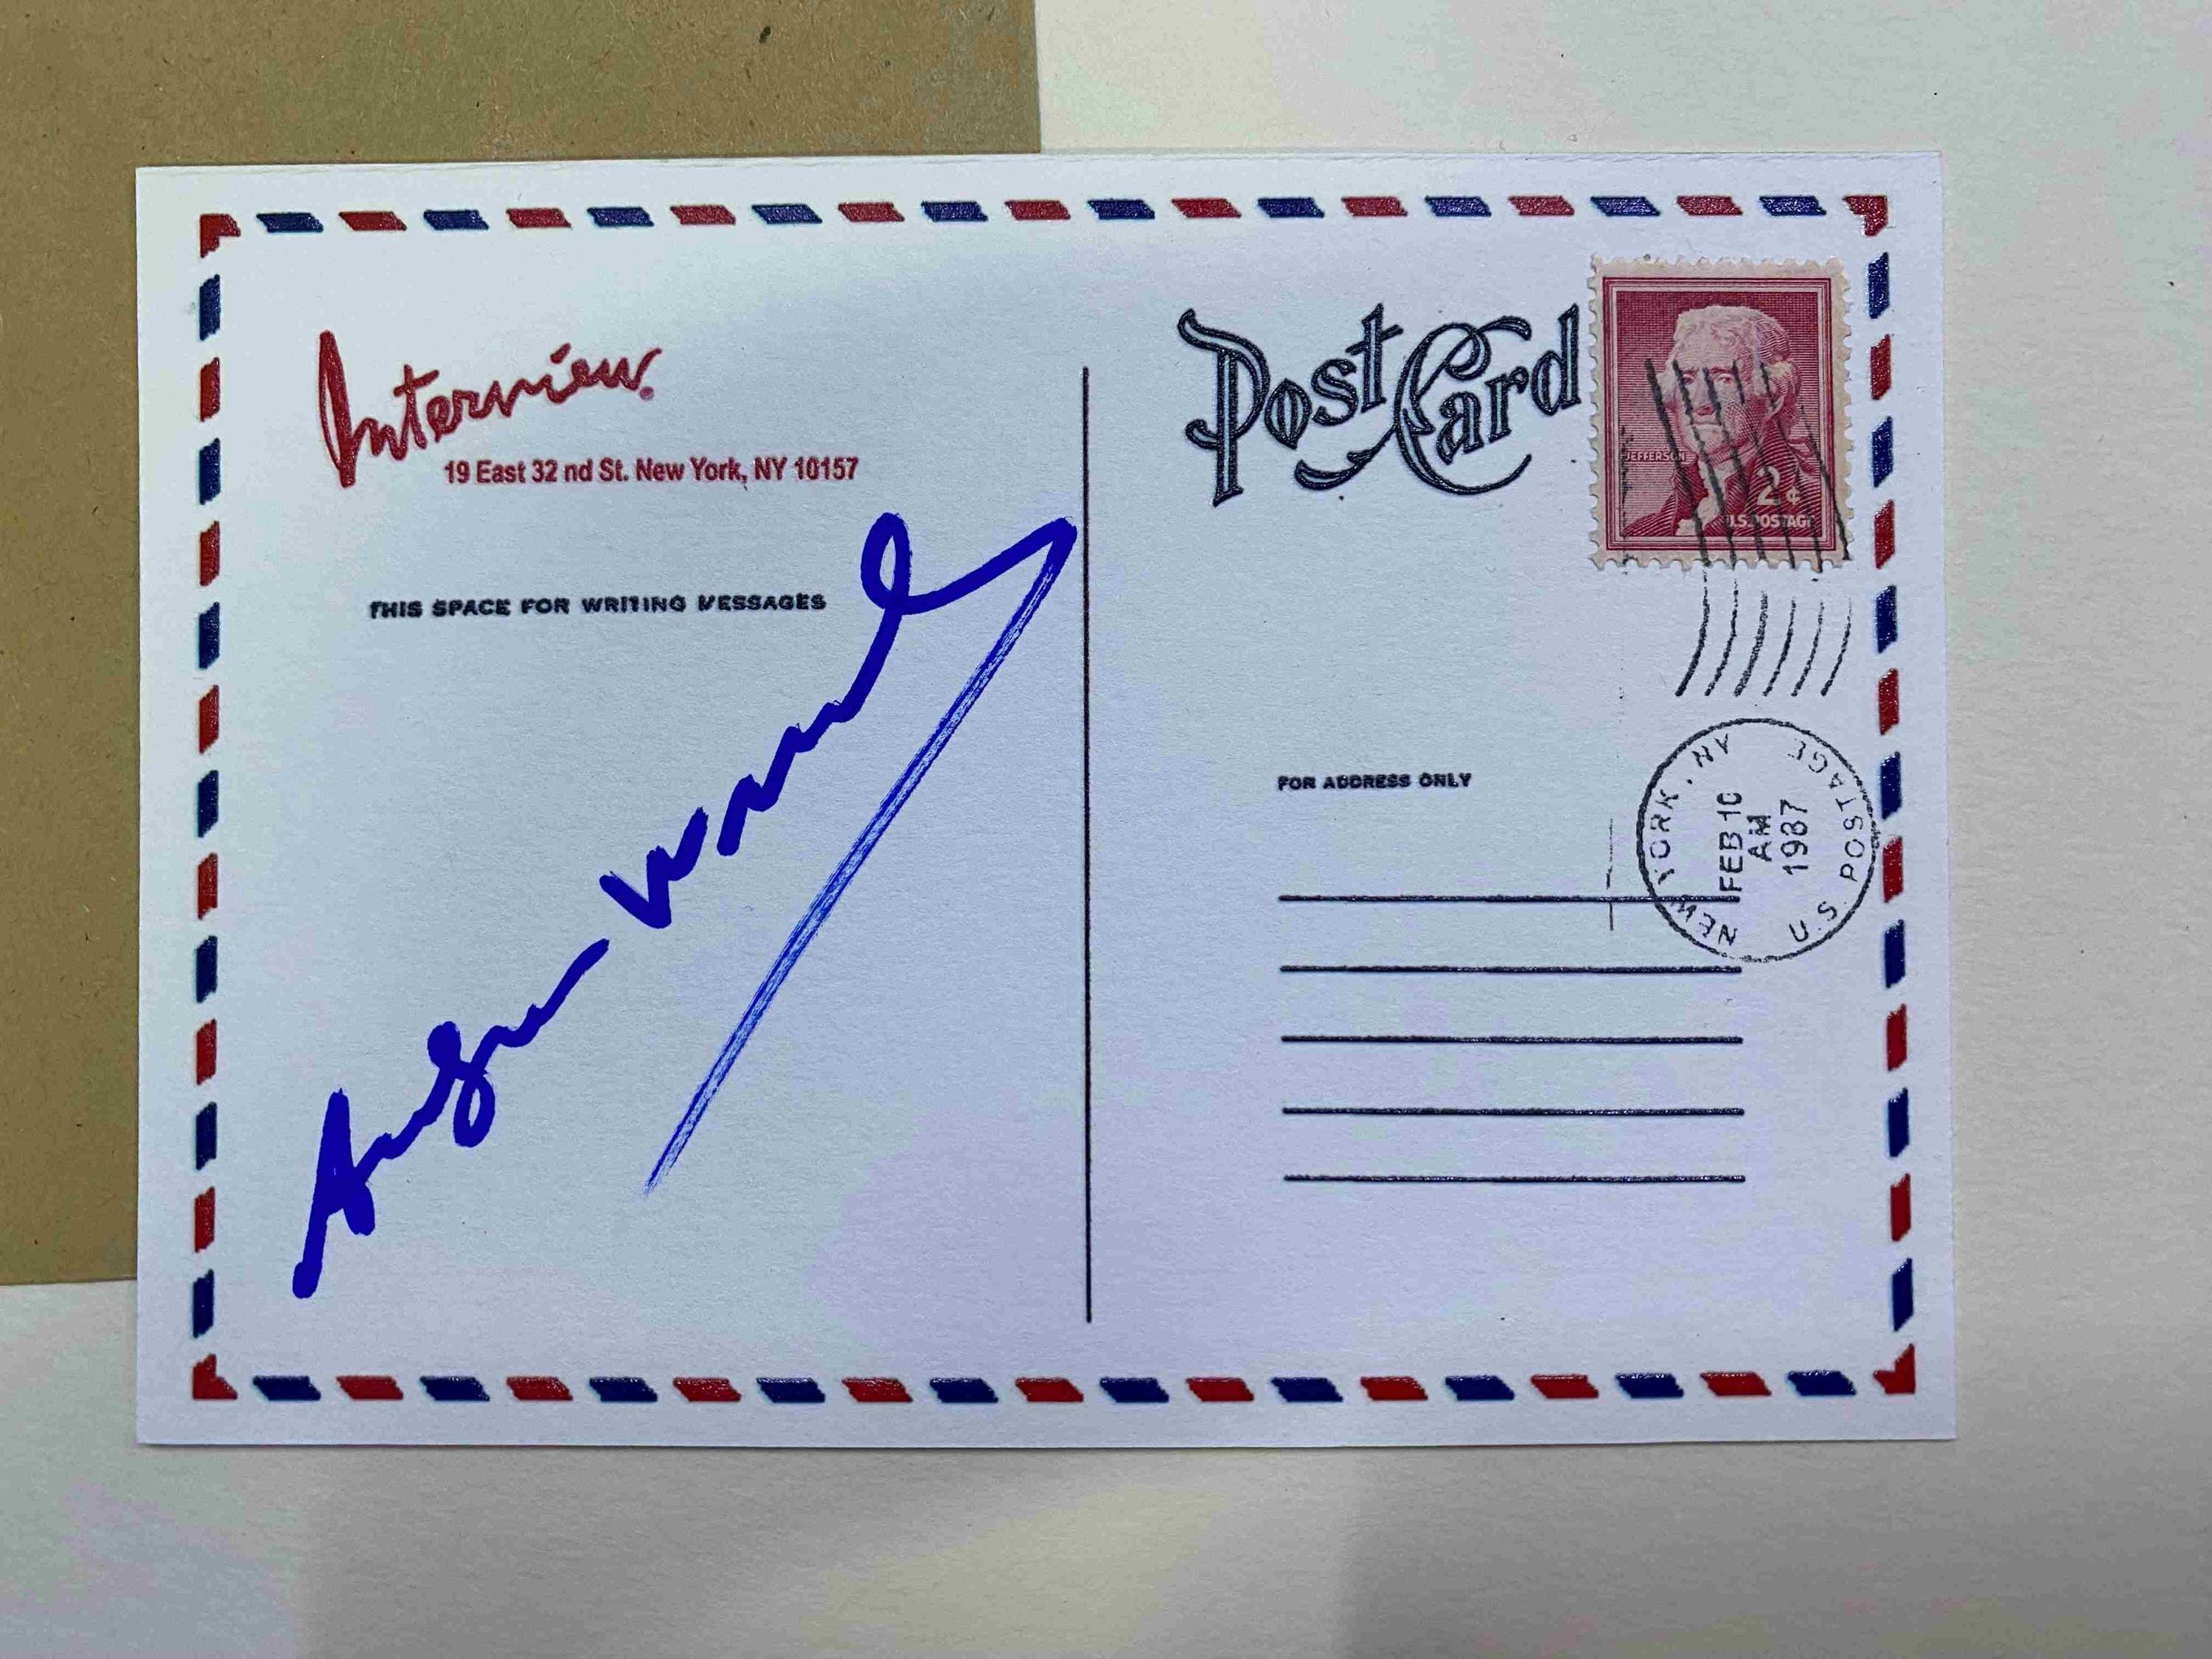 Interview.
19 East 32 nd St. New York, NY 10157
THIS SPACE FOR WRITING MESSAGES
Post Card
JEFFERSON
2¢
U.S. POSTAGE
FOR ADDRESS ONLY
NEW YORK, NY
FEB 10
AM
1987
U.S. POSTAGE